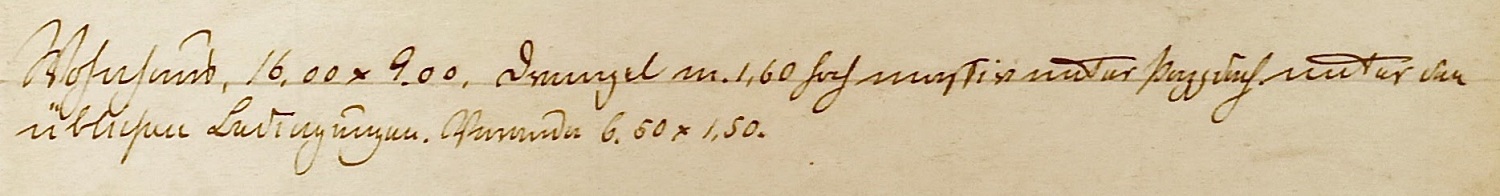 Wohnhaus, 16.00 x 9.00. Drempel m. 1,60 hoch massiv unter Pappdach unter den
üblichen Bedingungen. Veranda 6.50 x 1,50.